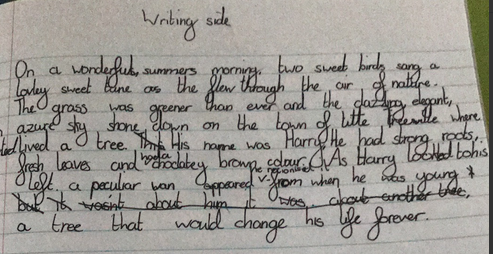 Writing side
On a wonderful, summers morning, two sweet birds sang a
lovley sweet tune as the flew through the air of nature.
The grass was greener than ever and the dazzling, elegant,
azure sky shone down on the town of little Treeville where
lived a tree. His name was Harry. He had strong roots,
fresh leaves and had a chocolatey brown colour. As Harry looked to his
left, a peculiar man appeared he regionised from when he was young &
but it wasnt about him it was about another tree,
a tree that would change his life forever.